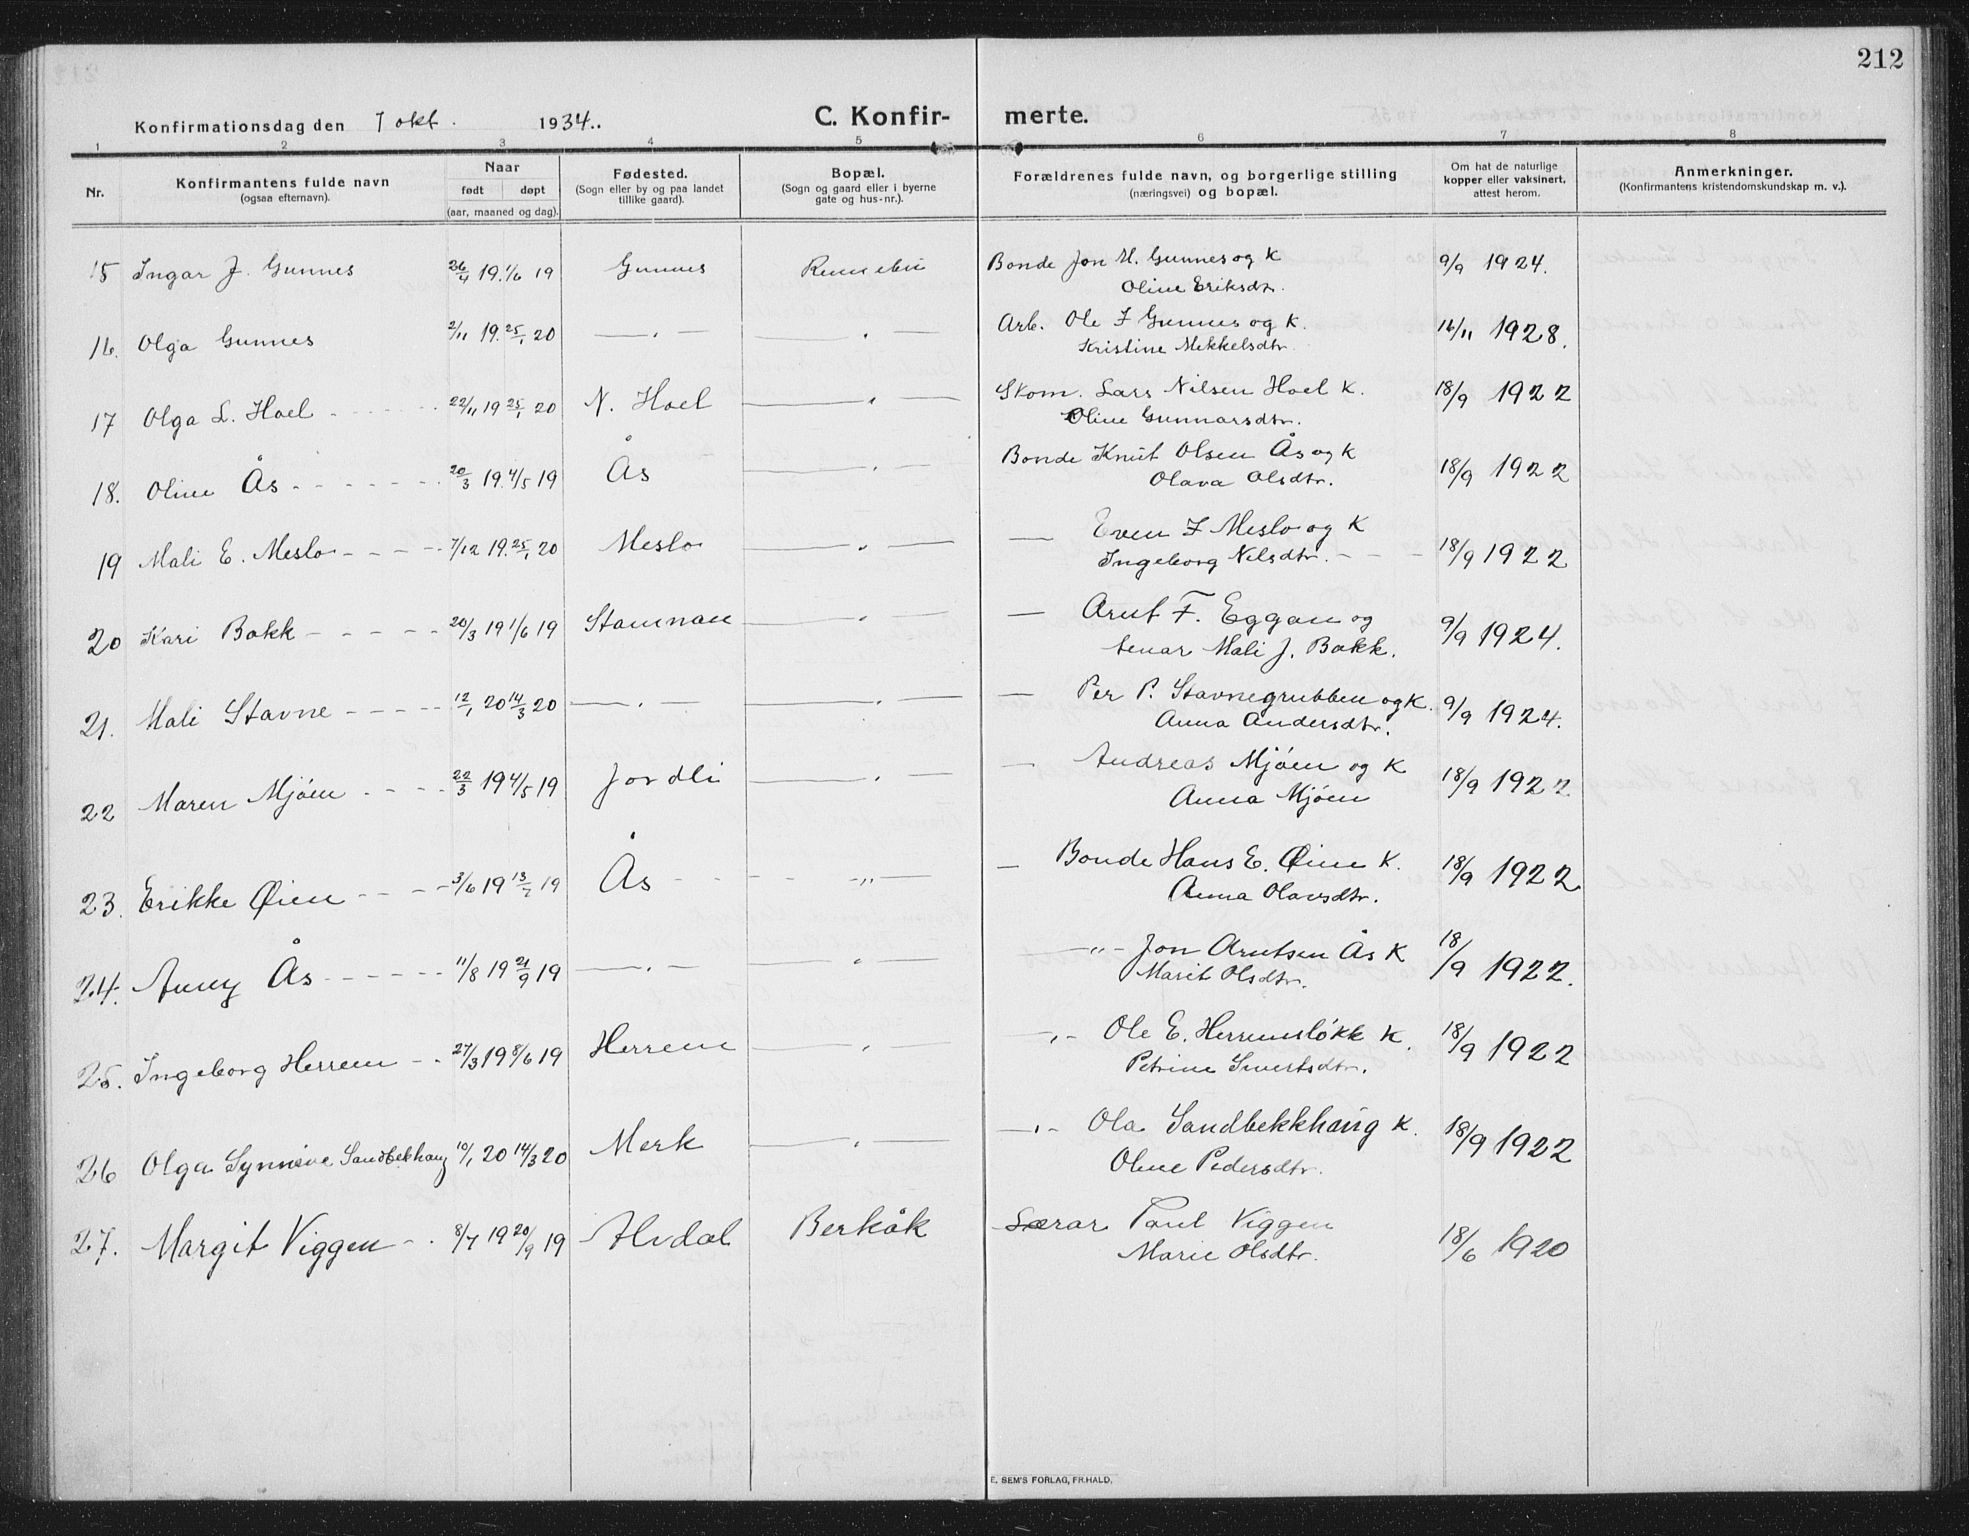 212
Konfirmationsdag den 7 okt. 1934.. C. Konfir- merte.
1 2 3 4 5 6 7 8
Nr. Konfirmantens fulde navn (ogsaa efternavn). Naar født døpt (aar, maaned og dag). Fødested. (Sogn eller by og paa landet tillike gaard). Bopæl. (Sogn og gaard eller i byerne gate og hus-nr.). Forældrenes fulde navn, og borgerlige stilling (næringsvei) og bopæl. Om hat de naturlige kopper eller vaksinert, attest herom. Anmerkninger. (Konfirmantens kristendomskundskap m. v.).
15 Ingar J. Gunnes 26/4 19. 1/6 19 Gunnes Rennebu Bonde Jon H. Gunnes og K 9/9 1924.
Oline Eriksdtr.
16. Olga Gunnes 2/11 19. 25/1 20 — " — — " — Arb. Ole J Gunnes og K. 16/11 1928.
Kristine Mikkelsdtr.
17 Olga L. Hoel - - - - 22/11 19 25/1 20 N. Hoel — " — Skom. Lars Nilsen Hoel K. 18/9 1922
Oline Gunnarsdtr.
18. Oline Ås - - - - 20/3 19. 4/5 19 Ås — " — Bonde Knut Olsen Ås og K 18/9 1922
Olava Olsdtr.
19 Mali E. Meslo - - - - 7/12 19. 25/1 20 Meslo — " — — Even J Meslo og K 18/9 1922
Ingeborg Nilsdtr. - - -
20 Kari Bakk - - - - 20/3 19 1/6 19 Stamnan — " — — Arnt F. Eggan og 9/9 1924.
tenar Mali J. Bakk.
21. Mali Stavne - - - - 12/1 20 14/3 20 — " — — " — — Per P. Stavnegrubben og K. 9/9 1924.
Anna Andersdtr.
22 Maren Mjøen - - - - 22/3 19 4/5 19 Jordli — " — — Andreas Mjøen og K 18/9 1922
Anna Mjøen
23. Erikke Øien - - - 3/6 19 13/7 19 Ås - - - — " — — Bonde Hans E. Øien K. 18/9 1922
Anna Olavsdtr.
24. Anny Ås - - - - 11/8 19 21/9 19 — " — — " — — " - Jon Arntsen Ås K 18/9 1922.
Marit Olsdtr.
25. Ingeborg Herrem - - 27/3 19 8/6 19 Herrem — " — — " - Ole E. Herremsløkk K. 18/9 1922
Petrine Sivertsdtr.
26 Olga Synnøve Sandbekhaug 10/1 20 14/3 20 Merk — " — — " - Ola Sandbekkhaug K. 18/9 1922
Oline Pedersdtr.
27. Margit Viggen - . 8/7 19 20/9 19 Alvdal Berkåk Lærar Paul Viggen 18/6 1920
Marie Olsdtr.
E. SEM'S FORLAG, FR.HALD.